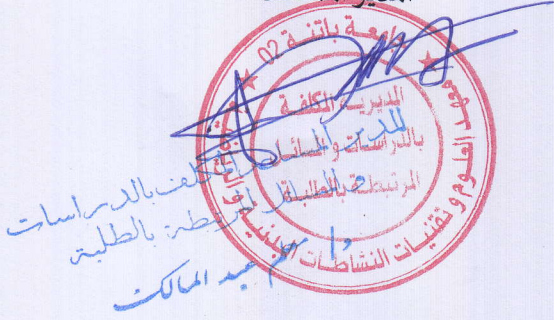 جامعة باتنة 02
معهد العلوم و تقنيات النشاطات البدنية و
المديرية المكلفة
بالدراسات والمسائل
المرتبطة بالطلبة
المدير المكلف بالدراسات
و المسائل المرتبطة بالطلبة
عبد المالك